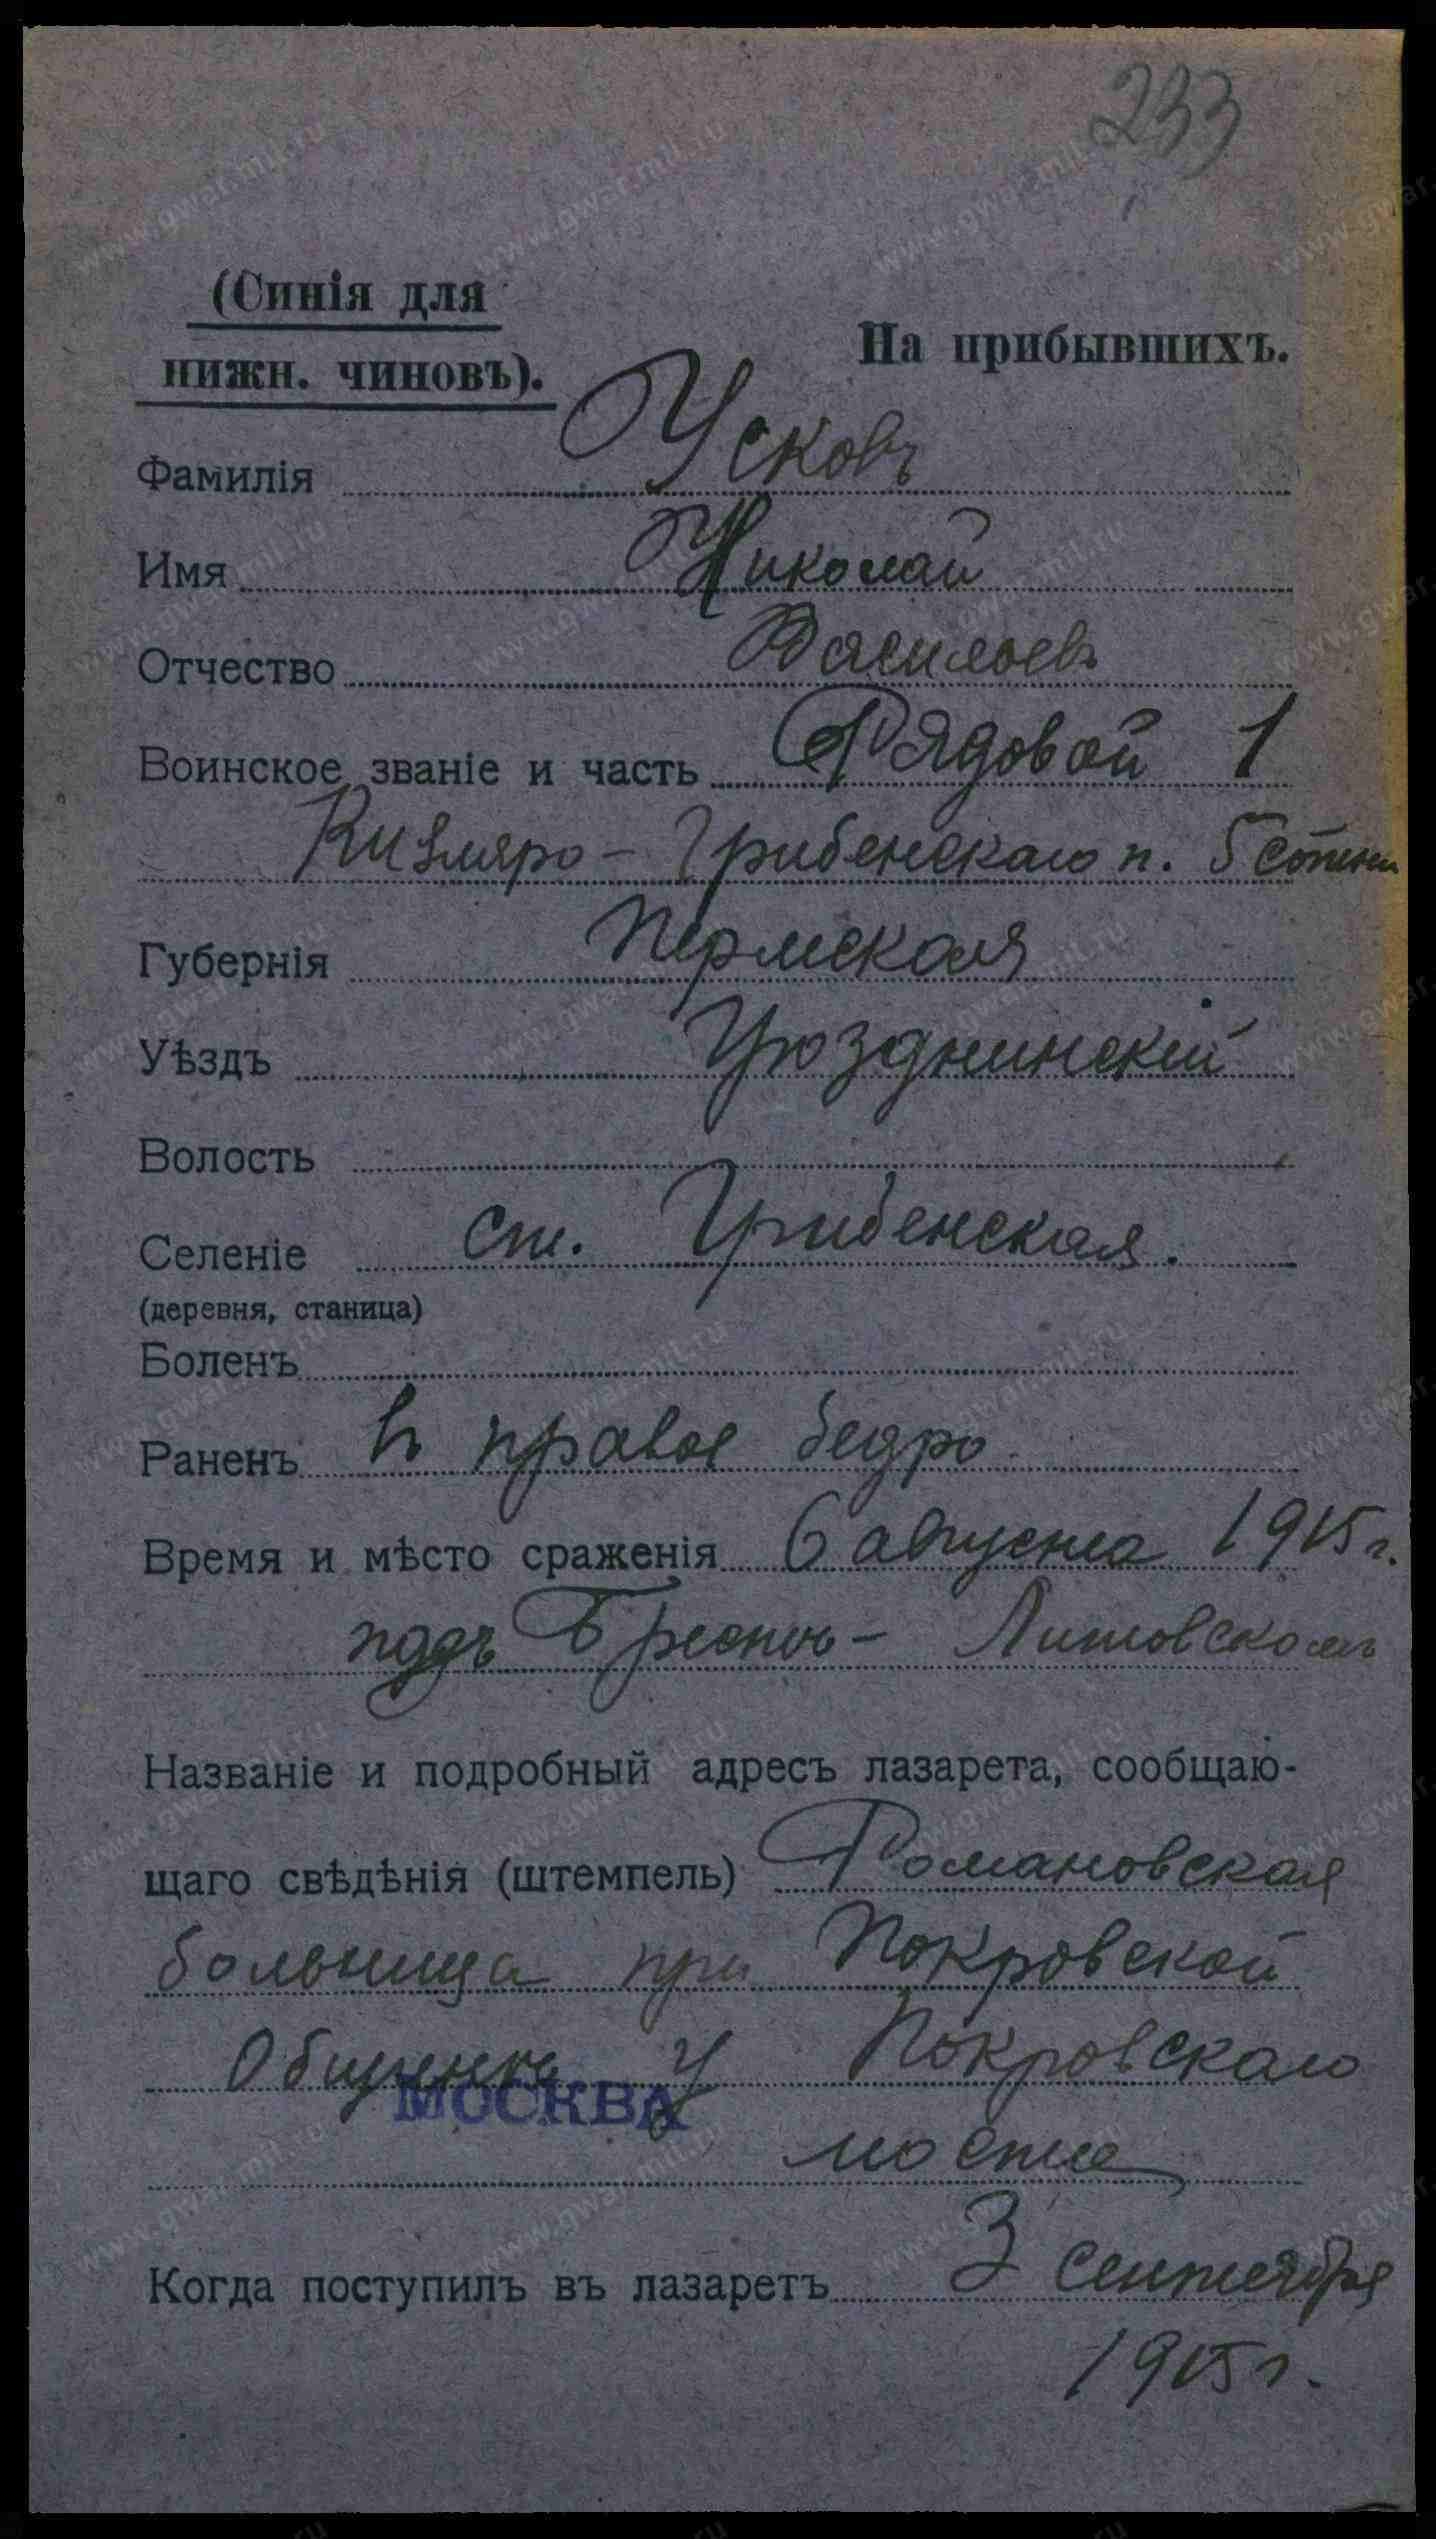 233
(Синія для
нижн. чиновъ).
На прибывшихъ.
Фамилія Усковъ
Имя Николай
Отчество Васильевъ
Воинское званіе и часть Рядовой 1
Кизляро-Грибенскаго п. 5 сотни
Губернія Пермская
Уѣздъ Грозднинскій
Волость
Селеніе ст. Грибенская.
(деревня, станица)
Боленъ
Раненъ въ правое бедро
Время и мѣсто сраженія 6 августа 1915 г.
подъ Брестъ-Литовскомъ
Названіе и подробный адресъ лазарета, сообщаю-
щаго свѣдѣнія (штемпель) Романовская
больница при Покровской
Общинѣ у Покровскаго
МОСКВА
моста
Когда поступилъ въ лазаретъ 3 сентября
1915 г.